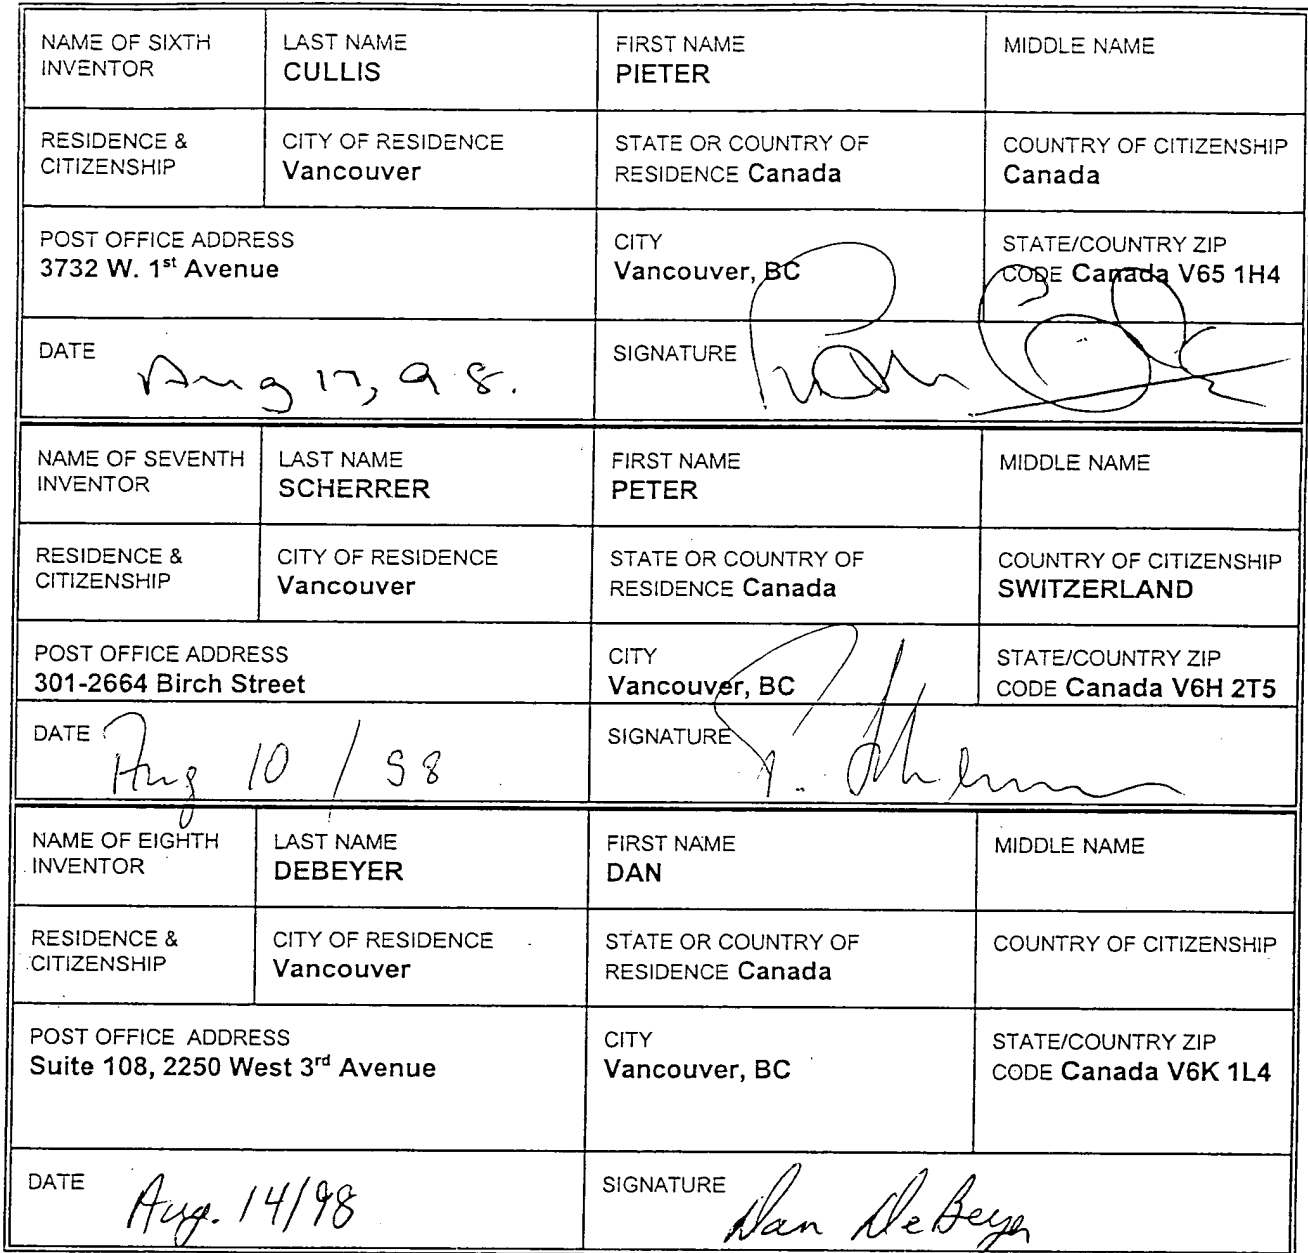 NAME OF SIXTH INVENTOR
LAST NAME
CULLIS
FIRST NAME
PIETER
MIDDLE NAME
RESIDENCE & CITIZENSHIP
CITY OF RESIDENCE
Vancouver
STATE OR COUNTRY OF RESIDENCE Canada
COUNTRY OF CITIZENSHIP
Canada
POST OFFICE ADDRESS
3732 W. 1st Avenue
CITY
Vancouver, BC
STATE/COUNTRY ZIP
CODE Canada V65 1H4
DATE Aug 17, 98.
SIGNATURE
NAME OF SEVENTH INVENTOR
LAST NAME
SCHERRER
FIRST NAME
PETER
MIDDLE NAME
RESIDENCE & CITIZENSHIP
CITY OF RESIDENCE
Vancouver
STATE OR COUNTRY OF RESIDENCE Canada
COUNTRY OF CITIZENSHIP
SWITZERLAND
POST OFFICE ADDRESS
301-2664 Birch Street
CITY
Vancouver, BC
STATE/COUNTRY ZIP
CODE Canada V6H 2T5
DATE Aug 10 / 98
SIGNATURE
NAME OF EIGHTH INVENTOR
LAST NAME
DEBEYER
FIRST NAME
DAN
MIDDLE NAME
RESIDENCE & CITIZENSHIP
CITY OF RESIDENCE
Vancouver
STATE OR COUNTRY OF RESIDENCE Canada
COUNTRY OF CITIZENSHIP
POST OFFICE ADDRESS
Suite 108, 2250 West 3rd Avenue
CITY
Vancouver, BC
STATE/COUNTRY ZIP
CODE Canada V6K 1L4
DATE Aug. 14/98
SIGNATURE Dan DeBeyer